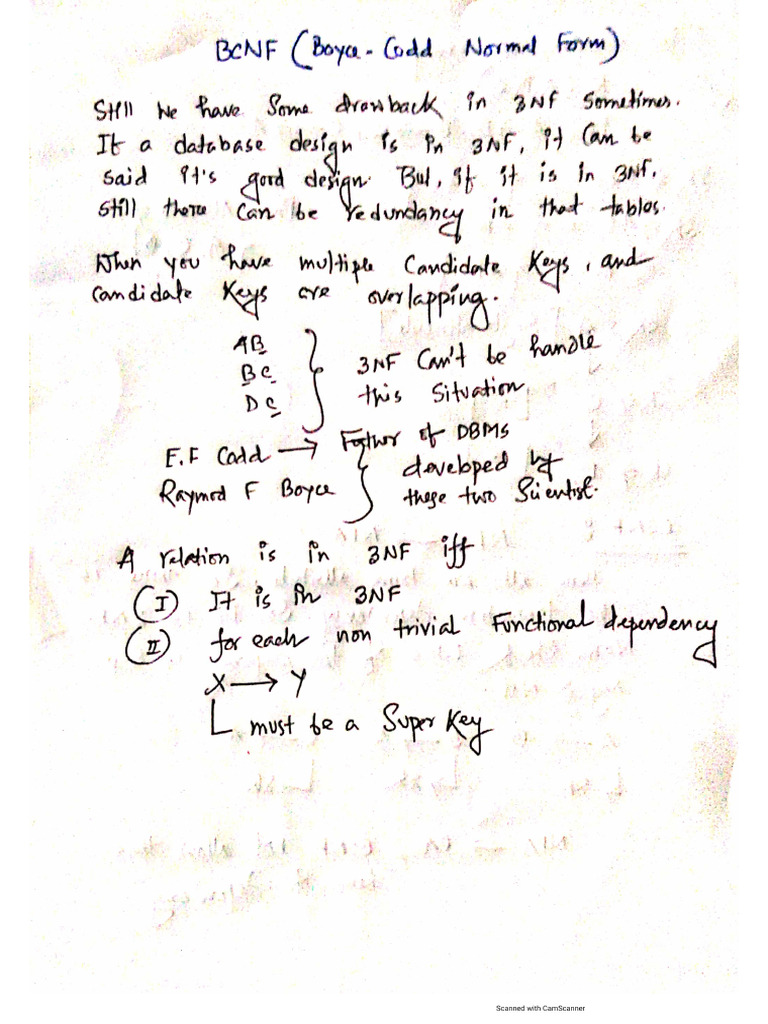 BCNF (Boyce-Codd Normal Form)
Still we have some drawback in 3NF sometimes.
If a database design is in 3NF, it can be
said it's good design. But, if it is in 3NF,
still there can be redundancy in that tables.
When you have multiple candidate keys, and
candidate keys are overlapping.
AB
BC
DC
3NF can't be handle
this situation.
E.F Codd → Father of DBMS
Raymod F Boyce
developed by
these two Scientist.
A relation is in 3NF iff
(I) It is in 3NF
(II) for each non trivial Functional dependency
X → Y
must be a Super Key
Scanned with CamScanner